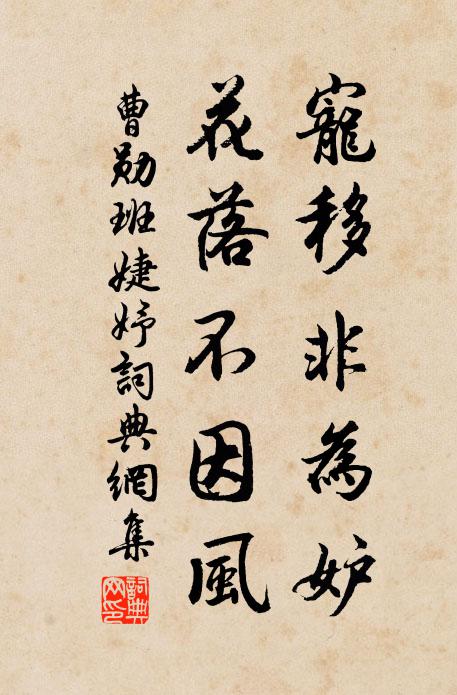 寵移非為妒
花落不因風
曹勛班婕妤詞典網集
詞典网印